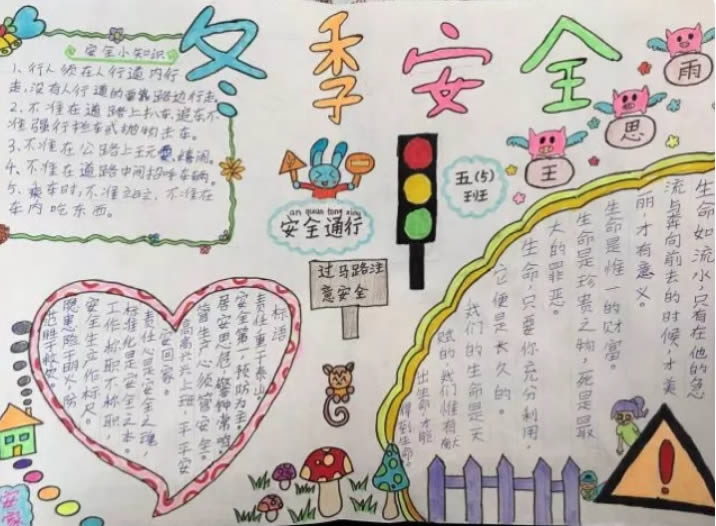 冬季安全
安全小知识
1、行人须在人行道内行
走,没有人行道的靠路边行走。
2、不准在道路上扒车、追车、不
准强行拦车或抛物击车。
3、不准在公路上玩耍、嬉闹。
4、不准在道路中间招呼车辆。
5、乘车时,不准站立、不准在
车内吃东西。
an quan tong xing
安全通行
五(5)
班
王
思
雨
过马路注
意安全
标语
责任重于泰山。
安全第一,预防为主。
居安思危,警钟常鸣。
管生产必须管安全。
高高兴兴上班,平平安
安回家。
责任心是安全之魂,
标准化是安全之本。
工作称职不称职,
安全生立作标尺。
隐患险于明火,防
范胜于救灾
生命如流水,只有在他的急
流与奔向前去的时候,才美
丽,才有意义。
生命是惟一的财富。
生命是珍贵之物,死是最
大的罪恶。
生命,只要你充分利用,
它便是长久的。
我们的生命是天
赋的,我们惟有献
出生命,才能
得到生命。
!